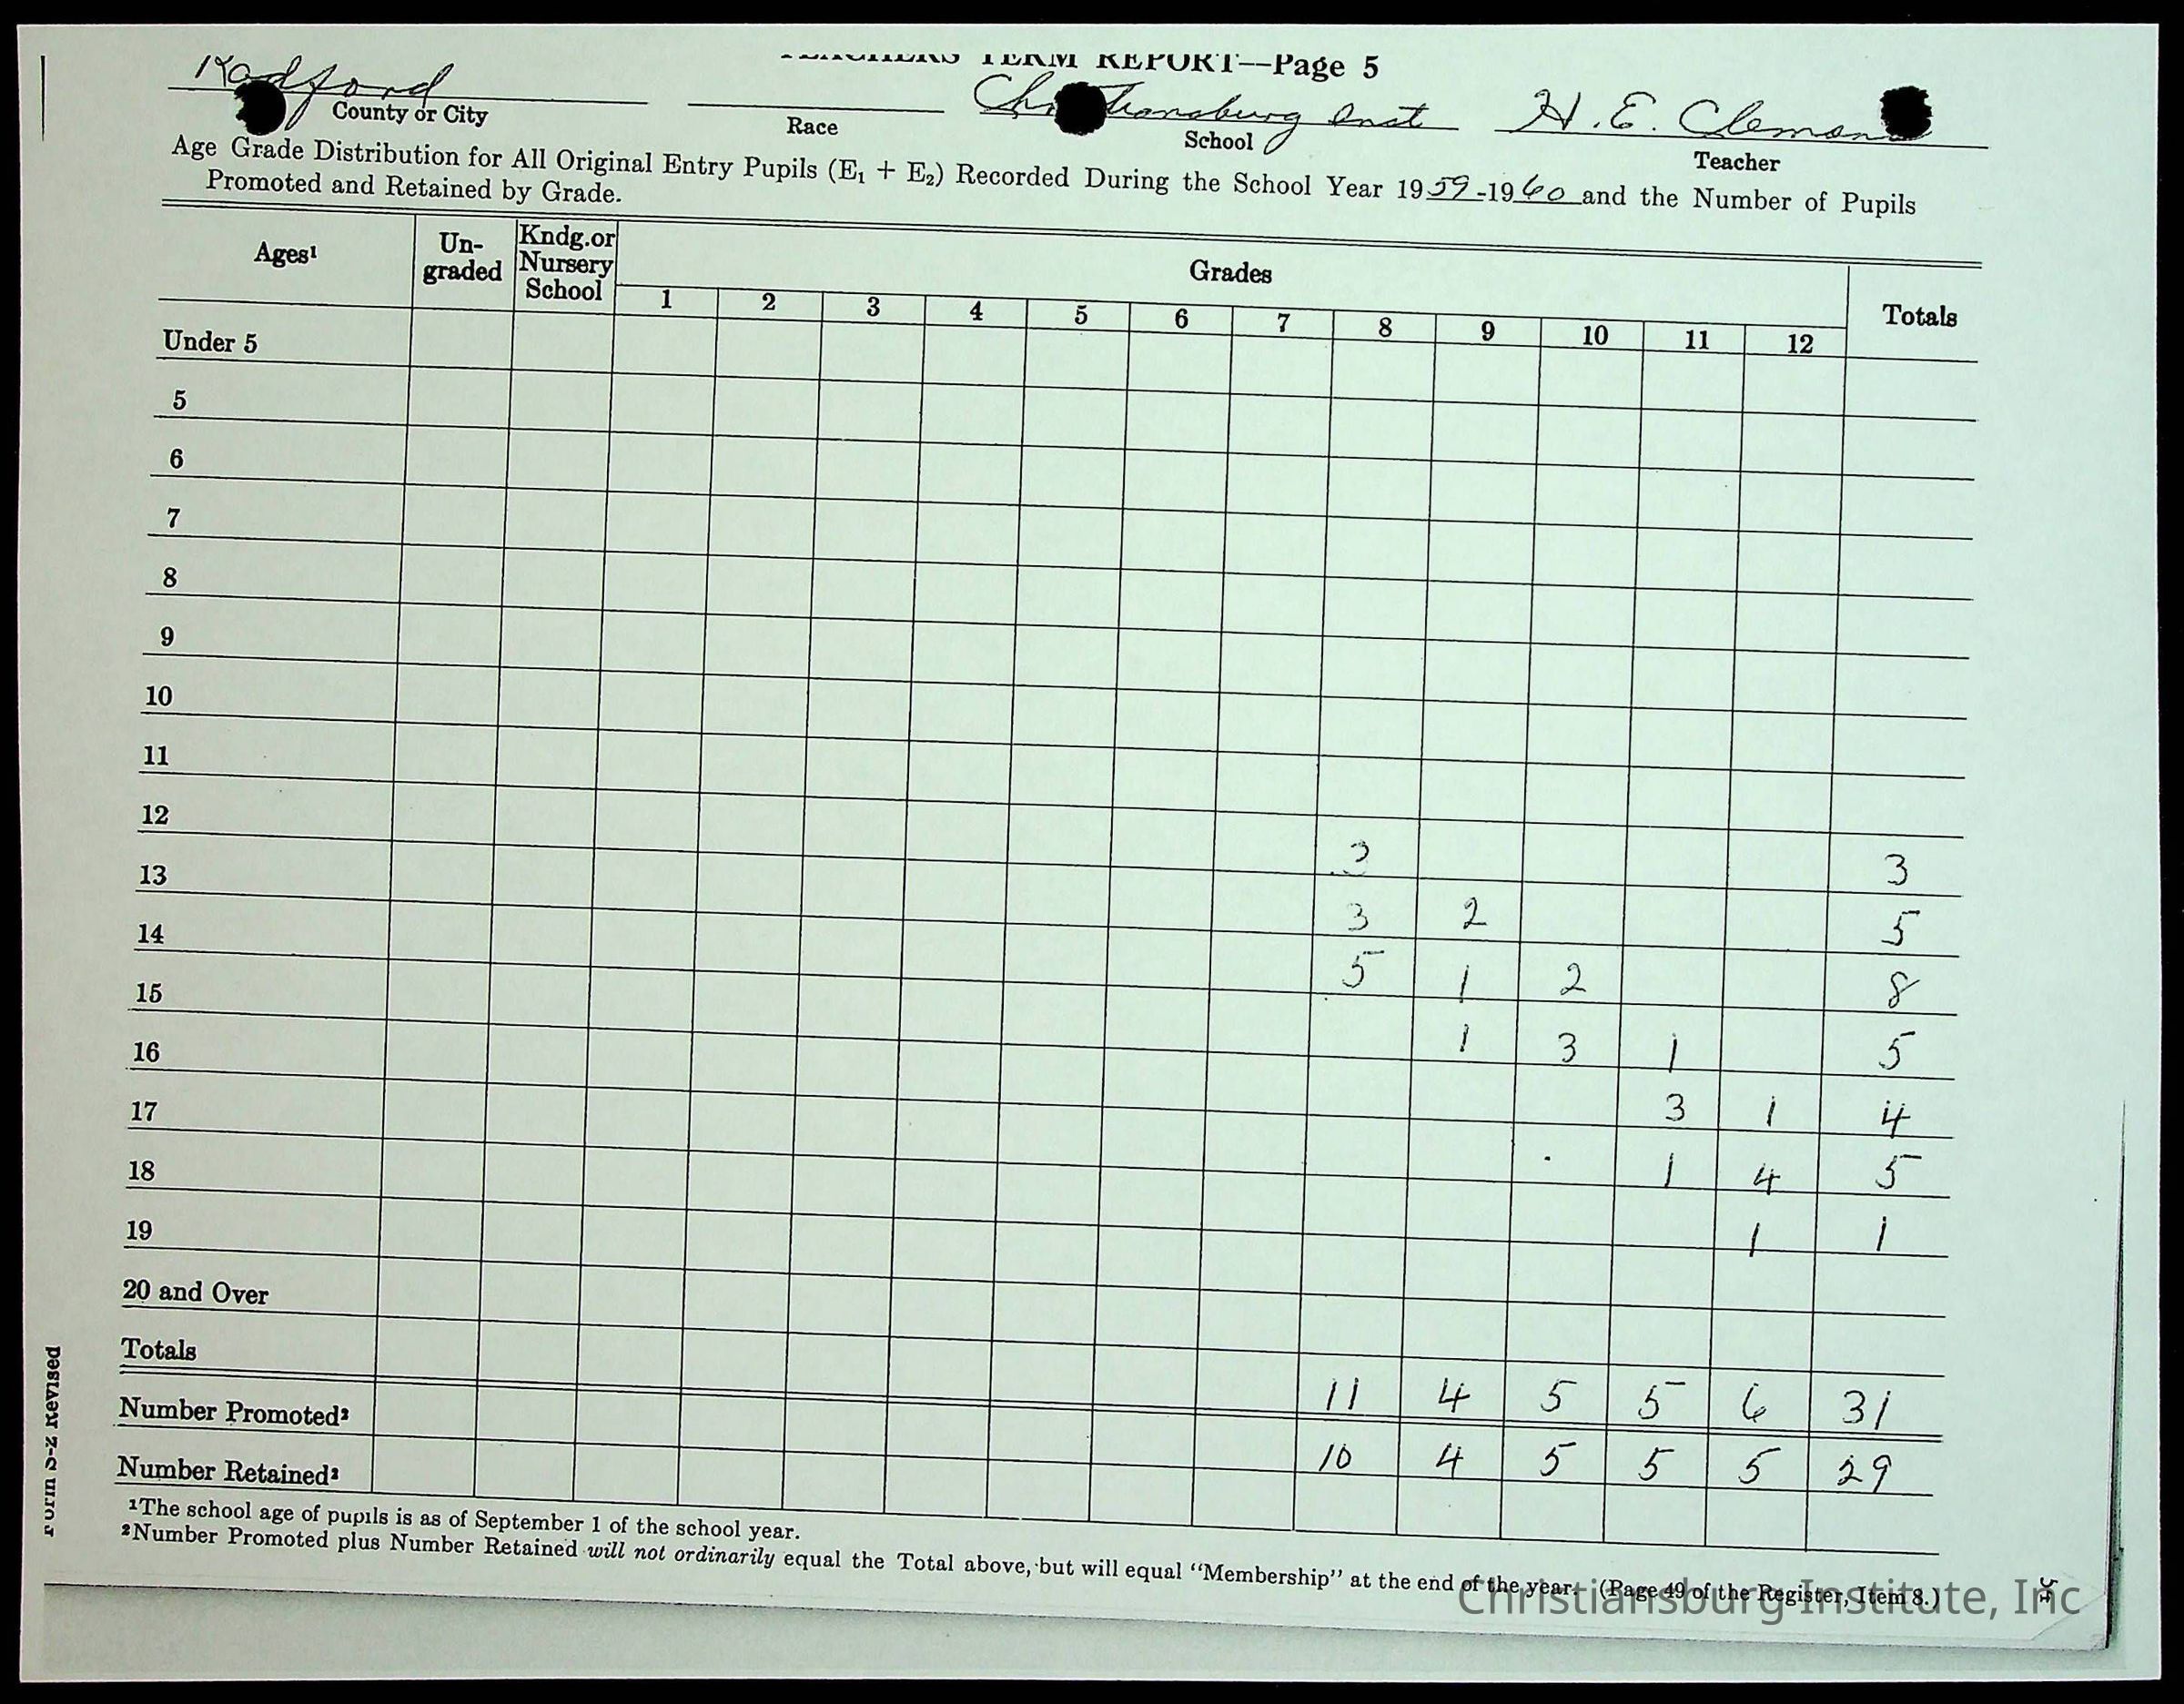 TEACHERS TERM REPORT—Page 5
Radford Christiansburg Inst H. E. Clemons
County or City Race School Teacher
Age Grade Distribution for All Original Entry Pupils (E₁ + E₂) Recorded During the School Year 1959-1960 and the Number of Pupils
Promoted and Retained by Grade.
Ages¹ Un-graded Kndg.or Nursery School Grades Totals
1 2 3 4 5 6 7 8 9 10 11 12
Under 5
5
6
7
8
9
10
11
12 3 3
13 3 2 5
14 5 1 2 8
15 1 3 1 5
16 3 1 4
17 1 4 5
18 1 1
19
20 and Over
Totals 11 4 5 5 6 31
Number Promoted² 10 4 5 5 5 29
Number Retained²
¹The school age of pupils is as of September 1 of the school year.
²Number Promoted plus Number Retained will not ordinarily equal the Total above, but will equal "Membership" at the end of the year. (Page 49 of the Register, Item 8.)
Form S-2 Revised
Christiansburg Institute, Inc